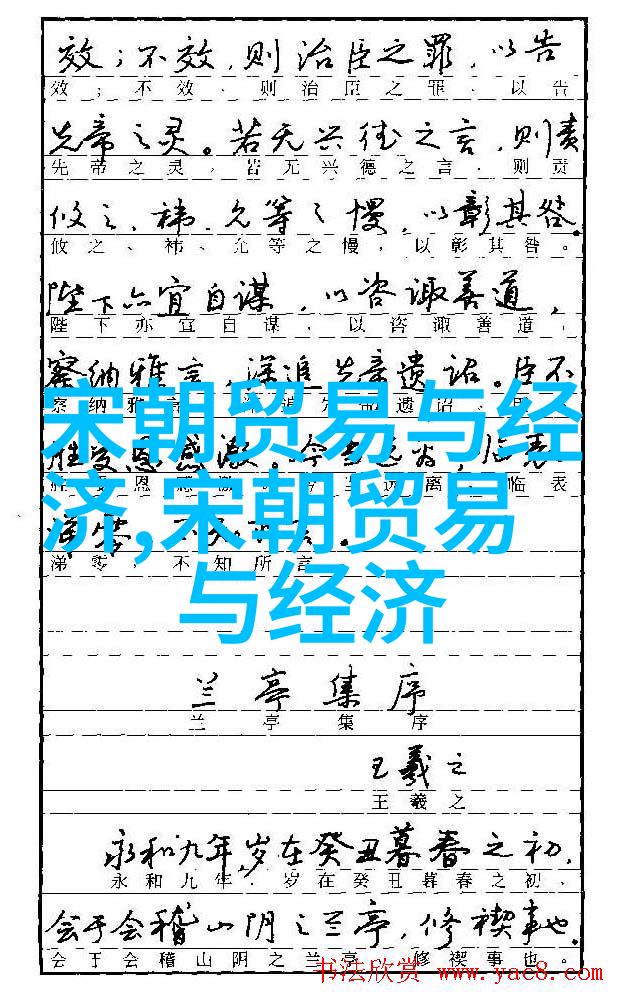 效；不效，则治臣之罪，以告
效；不效、则治臣之罪、以告
先帝之灵。若无兴德之言，则责
先帝之灵，若无兴德之言、则责
攸之、祎、允等之慢，以彰其咎。
攸之、祎、允等之慢，以彰其咎。
陛下亦宜自谋，以咨诹善道，
陛下亦宜自谋，以咨诹善道，
察纳雅言，深追先帝遗诏。臣不
察纳雅 遗诏
宋朝贸易与经
胜受恩感激。今当远离，临表
恩 离，临表
济,宋朝贸易
涕零，不知所言。
涕零，不知所言
与经济
兰亭集序
兰亭集序
王羲之
王羲之
永和九年，岁在癸丑暮春之初，
永和九年，岁在癸丑暮春之初、
会于会稽山阴之兰亭，修禊事也。
会于会稽山阴之兰亭，修禊事也。
书法欣赏 www.yac8.com